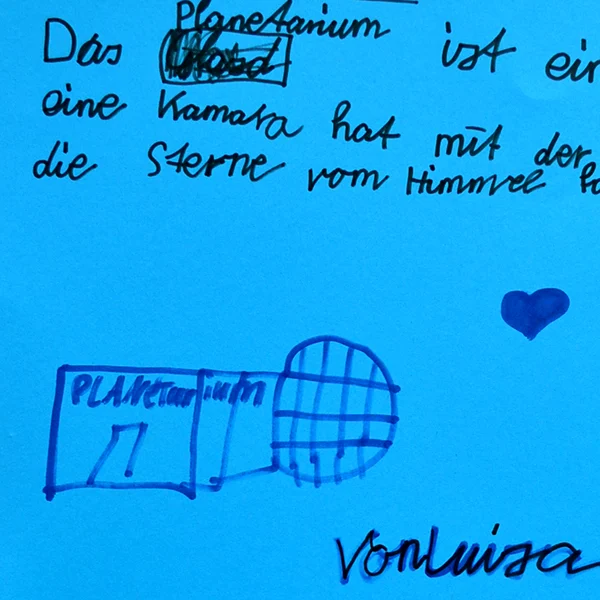 Planetarium
Das ist ein
eine Kamara hat mit der
die Sterne vom Himmel
PLANETarium
Von Luisa